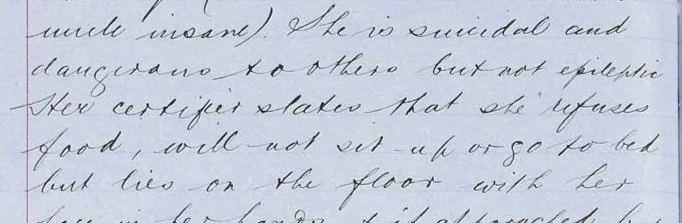 uncle insane). She is suicidal and
dangerous to others but not epileptic
Her certifier states that she refuses
food, will not sit up or go to bed
but lies on the floor with her
face in her hands & if approached by